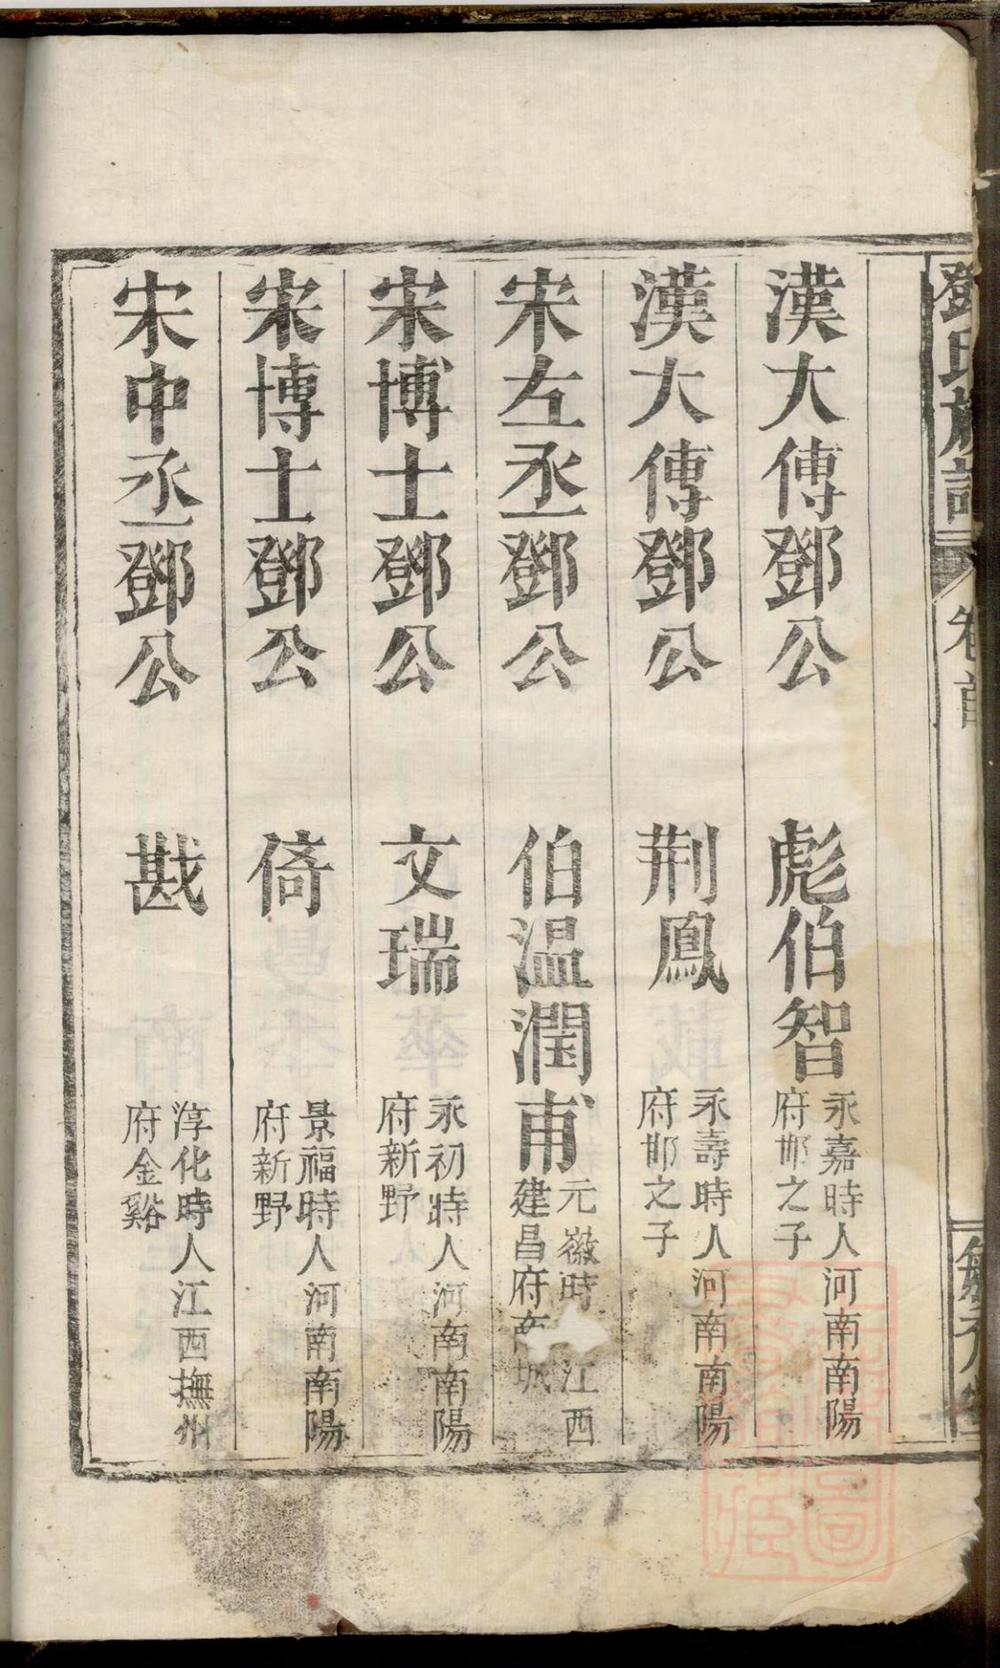 鄧氏族譜
卷首
漢大傅鄧公 彪伯智 永嘉時人河南南陽
府邯之子
漢大傅鄧公 荆鳳 永壽時人河南南陽
府邯之子
宋左丞鄧公 伯温潤甫 元徽時 江西
建昌府南城
宋博士鄧公 文瑞 永初時人河南南陽
府新野
宋博士鄧公 倚 景福時人河南南陽
府新野
宋中丞鄧公 戡 淳化時人江西撫州
府金谿